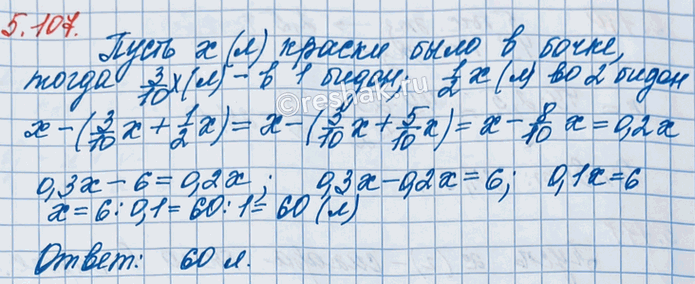 5.107.
Пусть x (л) краски было в бочке,
тогда 3/10 x (л) – в 1 бидон, 1/2 x (л) во 2 бидон
©reshak.ru
x – (3/10 x + 1/2 x) = x – (3/10 x + 5/10 x) = x – 8/10 x = 0,2x
0,3x – 6 = 0,2x; 0,3x – 0,2x = 6; 0,1x = 6
x = 6 : 0,1 = 60 : 1 = 60 (л)
Ответ: 60 л.